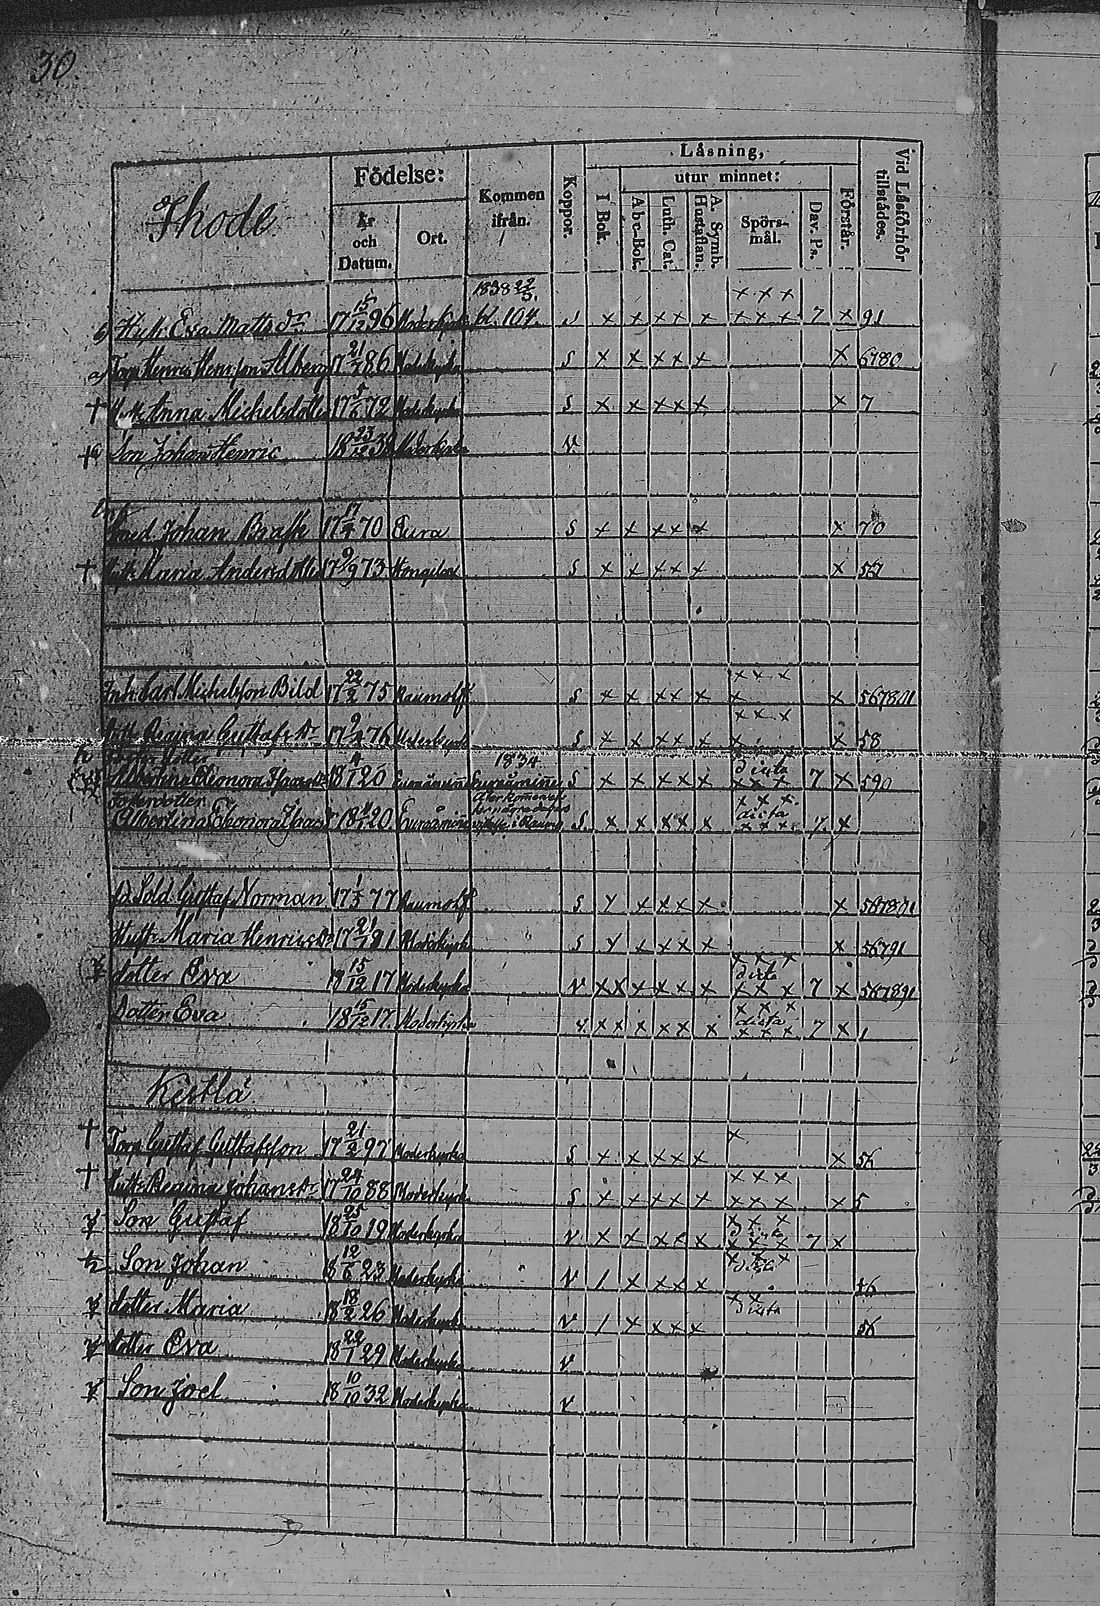 30.
Ihode
Födelse:
År och Datum.
Ort.
Kommen ifrån.
Koppor.
Läsning,
utur minnet:
I Bok.
Abc-Bok.
Luth. Cat.
A. Symb. Hustaflan.
Spörsmål.
Dav. Ps.
Förstår.
Vid Läsförhör tillstädes.
1838 22/3. x x x
b) Hust. Eva Matts dr 17 15/12 96 Moderkyrk. bl. 104. s x x x x x x x x 7 x 91
Henric Henrsson Alberg 17 21/7 86 Moderkyrk s x x x x x x 6780
† Anna Michelsdotter 17 5/6 72 Moderkyrk s x x x x x x 7
Son Johan Henric 18 23/12 38 Moderkyrk v.
Johan Brask 17 17/4 70 Eura s x x x x x x 70
† Maria Andersdotter 17 9/9 73 s x x x x x 57
x x x
Inh. Carl Michelsson Bild 17 22/2 75 Raumo s x x x x x x x 567801
x x x
Regina Gustafs dr 17 9/4 76 Moderkyrk s x x x x x x x 58
dotter 1834 dicta
Albertina Eleonora Isacsdr 18 4/1 20 Euraåminne Euraåminne s x x x x x x x x 7 x 590
Fosterdotter Återkommen x x x
Albertina Eleonora Isacsdr 18 4/1 20. Euraåminne i Raumo s. x x x x x dicta x x x 7. x
Sold. Gustaf Norman 17 1/5 77 Raumo s x x x x x 567801
Hust. Maria Henricsdr 17 21/7 81 Moderkyrk s x x x x x 56791
x x x
dotter Eva 18 15/12 17 Moderkyrka v x x x x x x dicta x x x 7 x 567891
x x x
Dotter Eva 18 15/12 17. Moderkyrka v. x x x x x x dicta x x x 7 x 1
Kestlä
† Torp. Gustaf Gustafsson 17 21/2 97 Moderkyrka s x x x x x x x 56
† Hust. Regina Johansdr 17 24/10 88 Moderkyrk. s x x x x x x x x x x x x 5
Son Gustaf 18 25/10 19 Moderkyrka v x x x x x x x x dicta x x x 7 x
Son Johan 18 12/6 23 Moderkyrka v / x x x x x x x dicta 56
dotter Maria 18 18/2 26 Moderkyrka v / x x x x x x dicta 56
dotter Eva 18 22/1 29 Moderkyrka v
Son Joel 18 10/10 32 Moderkyrka v